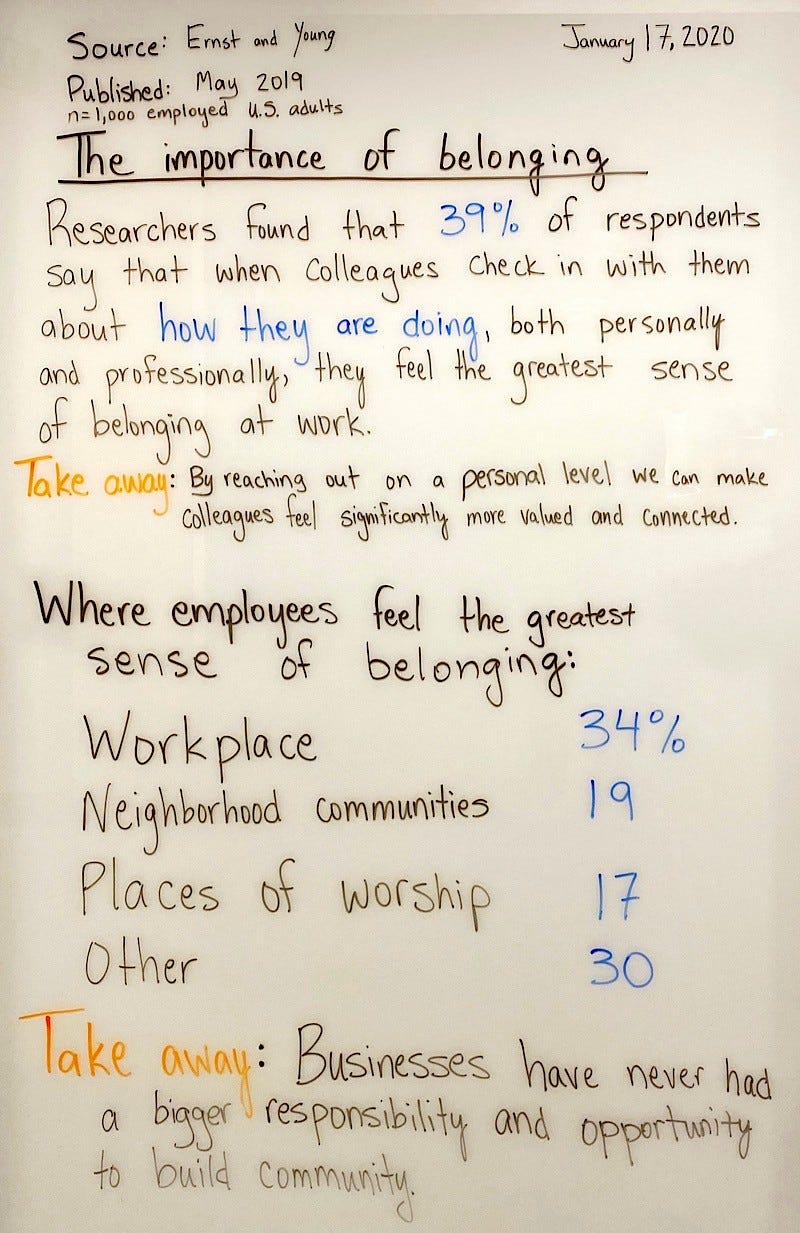 Source: Ernst and Young January 17, 2020
Published: May 2019
n=1,000 employed U.S. adults
The importance of belonging
Researchers found that 39% of respondents
say that when Colleagues Check in with them
about how they are doing, both personally
and professionally, they feel the greatest sense
of belonging at work.
Take away: By reaching out on a personal level we can make
Colleagues feel significantly more valued and connected.
Where employees feel the greatest
sense of belonging:
Workplace 34%
Neighborhood communities 19
Places of worship 17
Other 30
Take away: Businesses have never had
a bigger responsibility and opportunity
to build community.